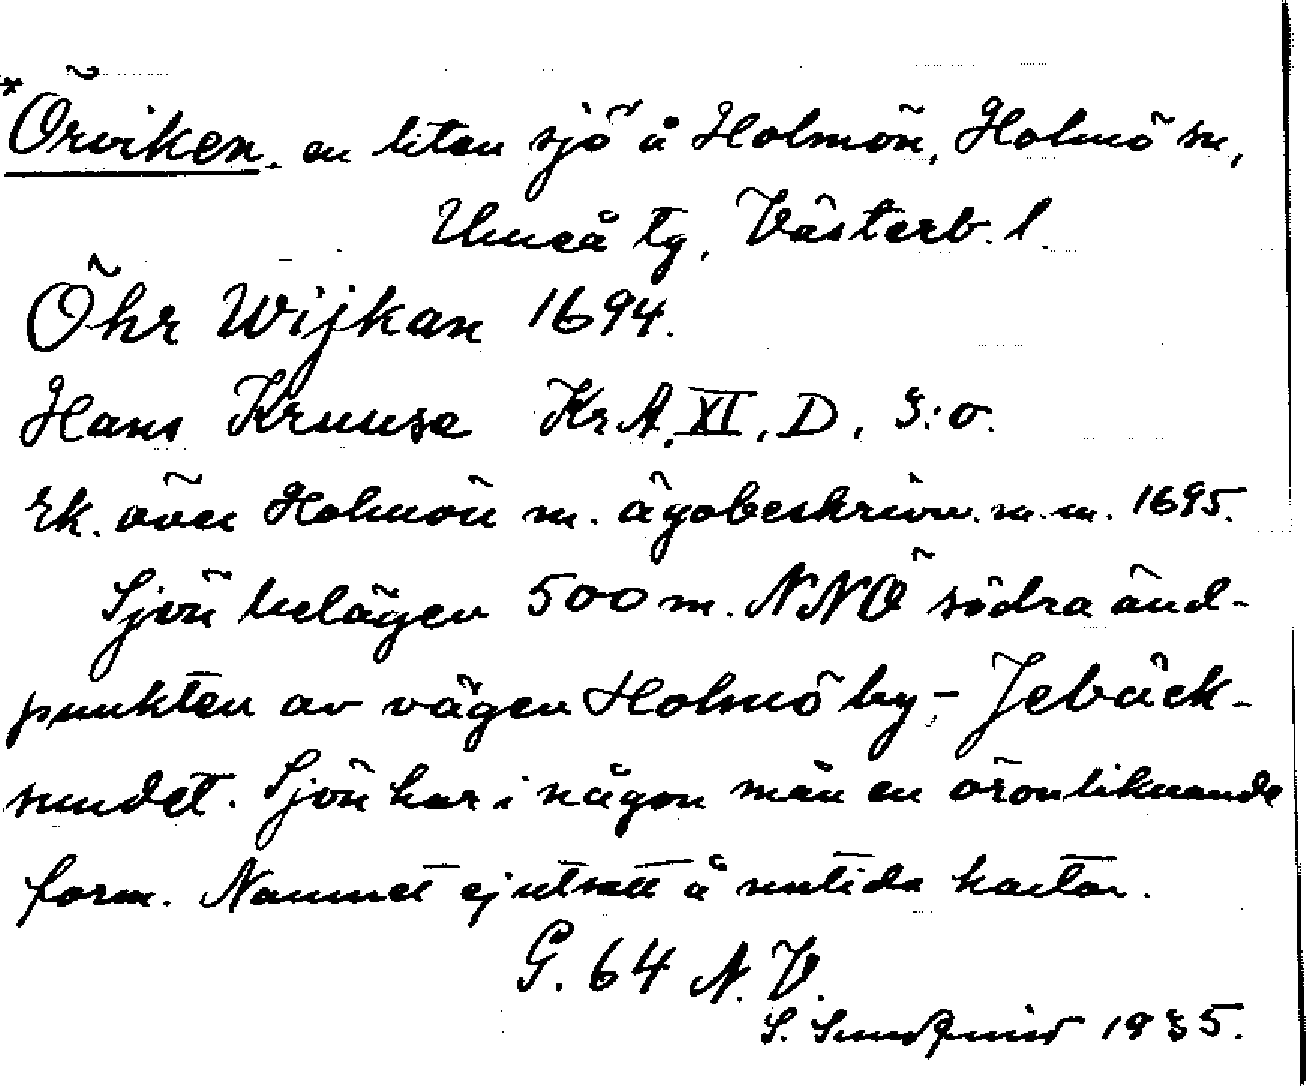 *Örviken. en liten sjö å Holmön, Holmö sn,
Umeå tg, Västerb. l.
Öhr Wijkan 1694.
Hans Kruuse Kr. A, XI, D, 3:o.
Ek. över Holmön m. ägobeskrivn. m.m. 1695.
Sjön belägen 500 m. NNÖ södra änd-
punkten av vägen Holmö by, - Jebäck-
sundet. Sjön har i någon mån en öronliknande
form. Namnet ej utsatt å nutida kartor.
G. 64 N.V.
S. 1935.